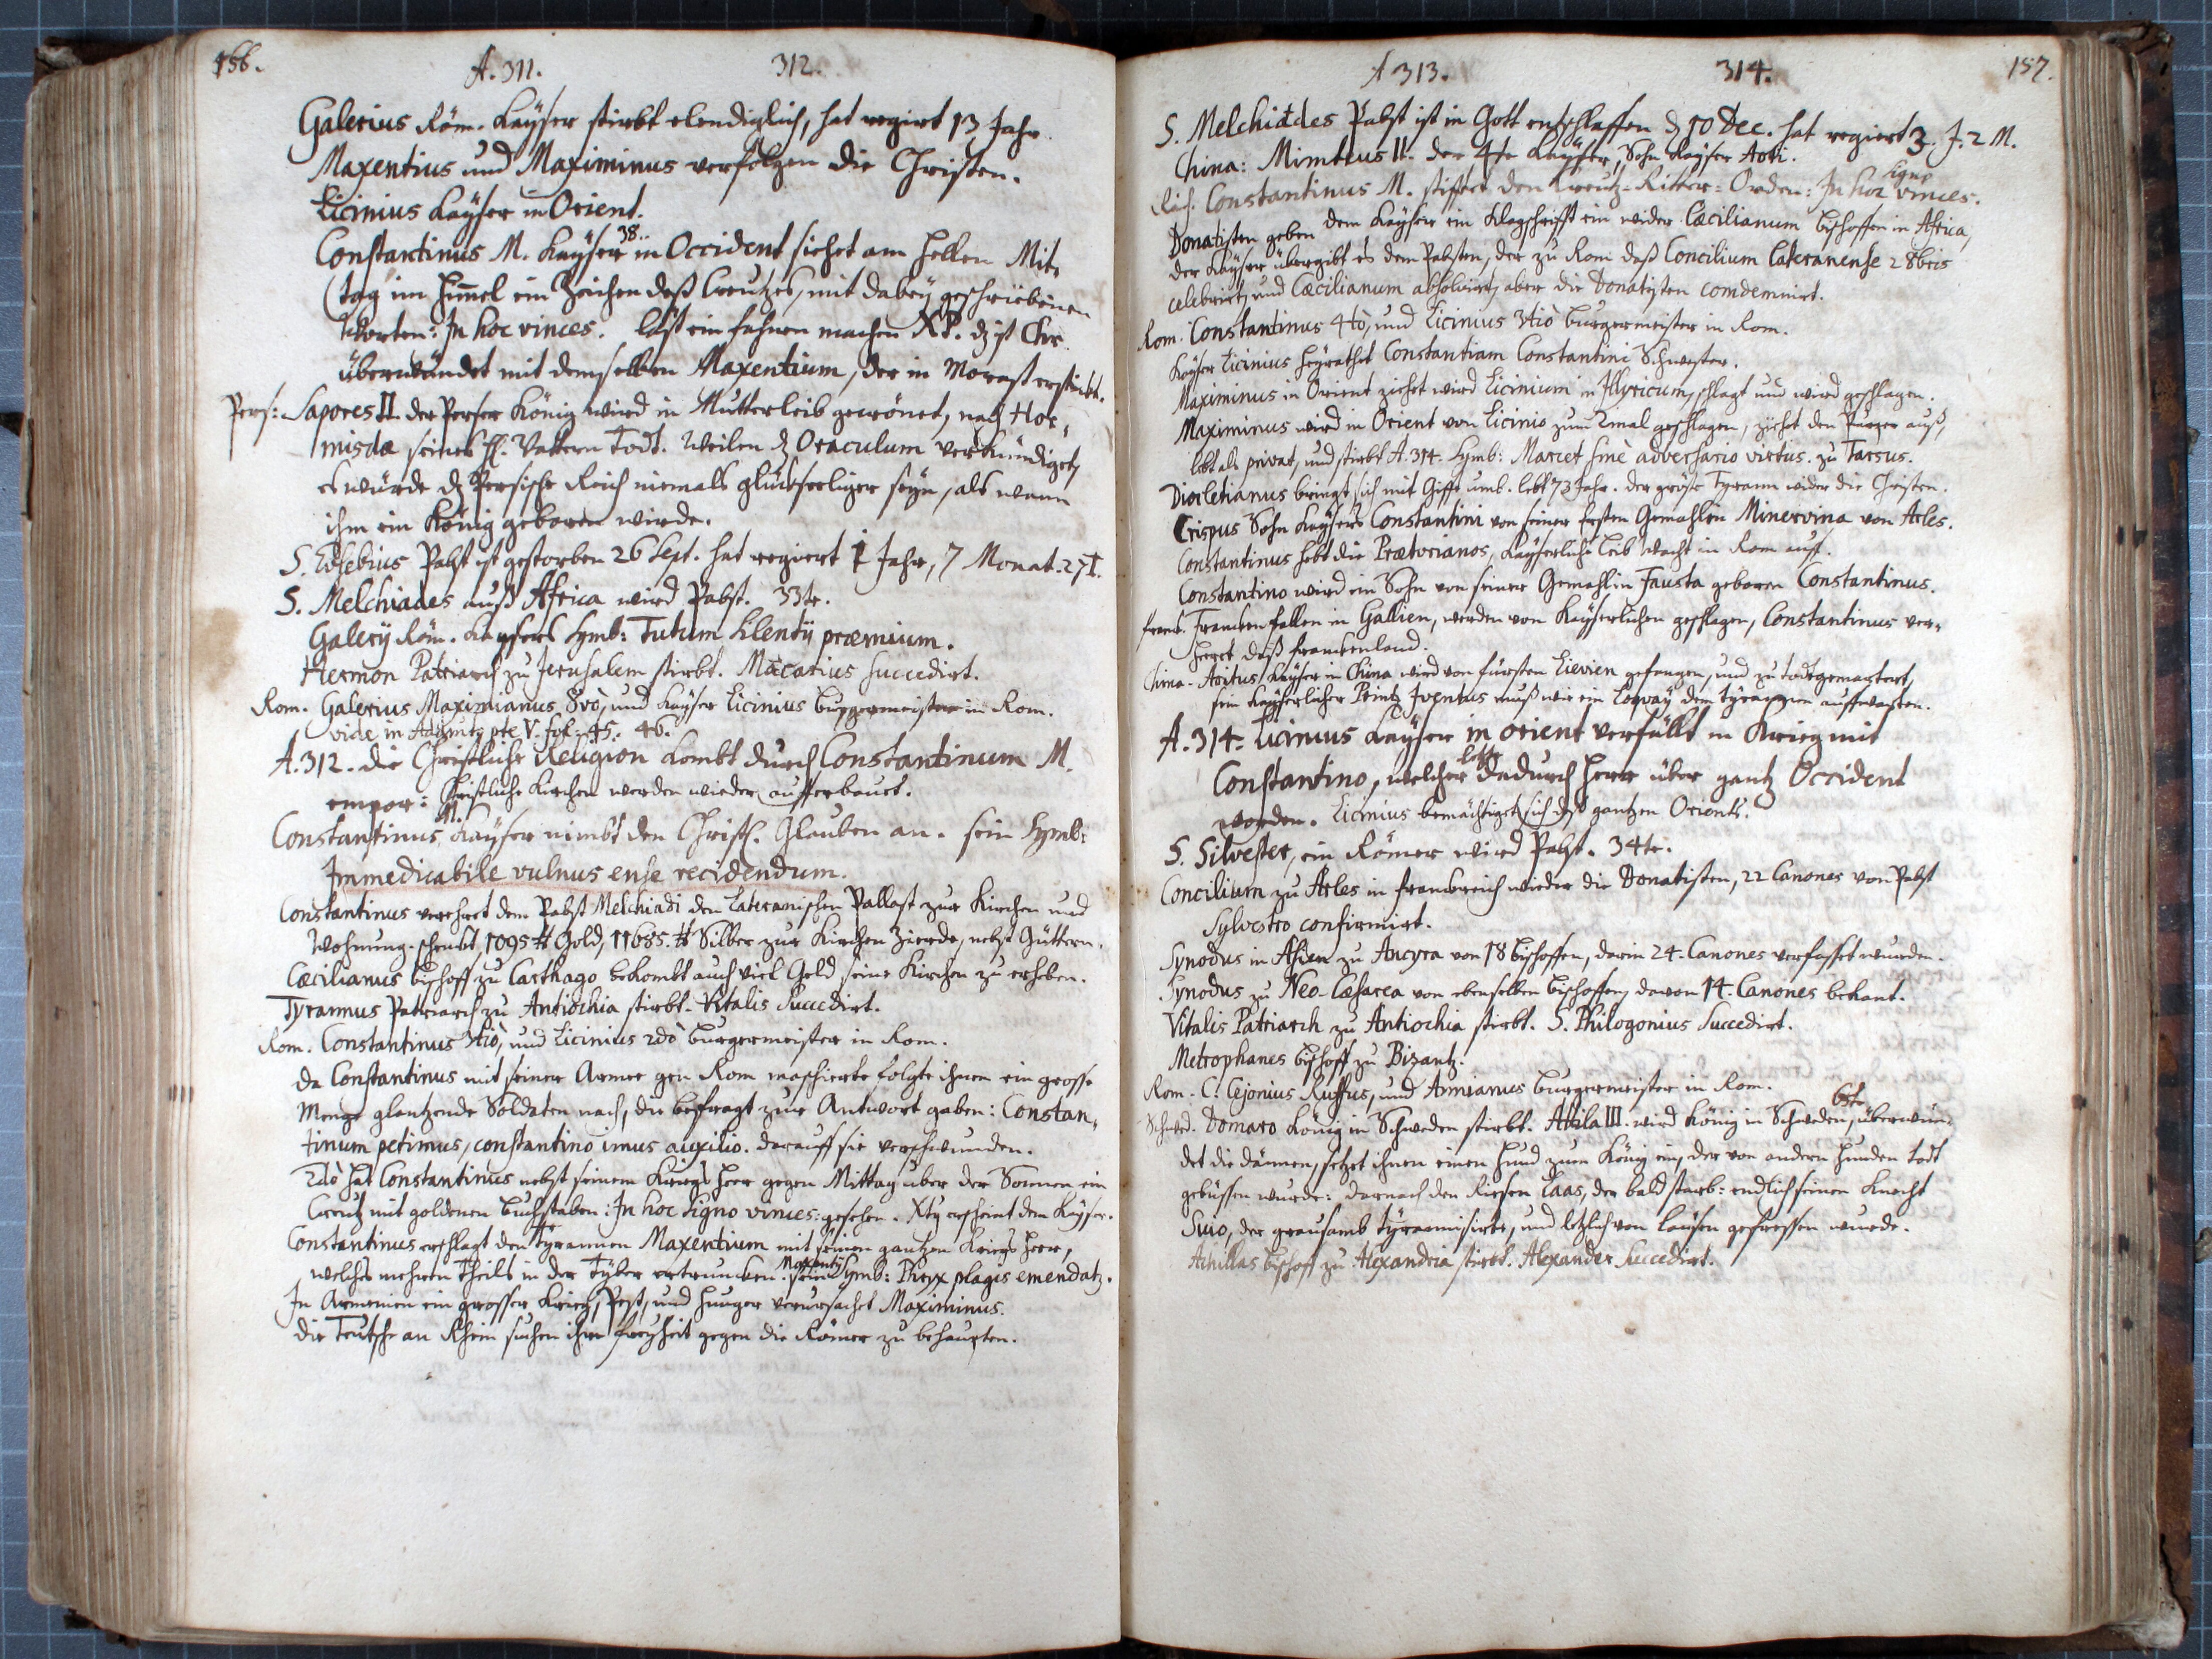 156.
A. 311. 312.
Galerius Röm. Kayser stirbt elendiglich, hat regirt 13 Jahr.
Maxentius und Maximinus verfolgen die Christen.
Licinius Kayser in Orient.
Constantinus M. Kayser 38. in Occident siehet am hellen Mit-
tag im Himel ein Zeichen deß Creutzes, mit dabey geschriebenen
Worten: In hoc vinces. läst ein fahnen machen XP. dz ist Chr.
überwündet mit demselben Maxentium, der in Morast erstickt.
Pers: Sapores II. der Perser König wird in Mutterleib gecrönet, nach Hor-
misdæ seines H. Vattern Todt. Weilen dz Oraculum verkündiget,
es würde dz Persische Reich niemals glückseeliger seyn, als wann
ihm ein König geboren wirde.
S. Eusebius Pabst ist gestorben 26 Sept. hat regiert 1 Jahr, 7 Monat. 27 T.
S. Melchiades auß Africa wird Pabst. 33te.
Galerii Röm. Kaysers Symb: Tutum silentii præmium.
Hermon Patriarch zu Jerusalem stirbt. Macarius succedirt.
Rom. Galerius Maximianus 8vò, und Kayser Licinius Burgermeister in Rom.
vide in pte V. fol. 45. 46.
A. 312. die Christliche Religion kombt durch Constantinum M.
empor: Christliche Kirchen werden wieder aufferbauet.
Constantinus M. Kayser nimbt den Christl. Glauben an. sein Symb:
Immedicabile vulnus ense recidendum.
Constantinus verehret dem Pabst Melchiadi den Lateranischen Pallast zur Kirchen und
Wohnung. schenkt, 1095 ℔ Gold, 11685. ℔ Silber zur Kirchen Zierde, nebst Güttern.
Cæcilianus bischoff zu Carthago bekombt auch viel Geld seine Kirchen zu erheben.
Tyrannus Patriarch zu Antiochia stirbt. Vitalis succedirt.
Rom. Constantinus 3tiò, und Licinius 2dò Burgermeister in Rom.
Da Constantinus mit seiner Armee gen Rom maschierte folgte ihnen ein grosse
Menge glantzende Soldaten nach, die befragt zur Antwort gaben: Constan-
tinum petimus, constantino imus auxilio. darauff sie verschwunden.
2dò hat Constantinus nebst seinem Kriegs Heer gegen Mittag über der Sonnen ein
Creutz mit goldenen Buchstaben: In hoc signo vinces: gesehen. Xtus erscheint dem Kayser.
Constantinus erschlagt den tyrannen Maxentium mit seinen gantzen Kriegs Heer,
welches mehrern Theils in der Tyber ertruncken. Maxentii sein Symb: Phryx plagis emendatz.
In Armenien ein grosser Krieg, Pest, und Hunger verursachet Maximinus.
die Teutsche an Rhein suchen ihre freyheit gegen die Römer zu behaupten.
A 313. 314. 157.
S. Melchiades Pabst ist in Gott entschlaffen dz 10 Dec. hat regiert 3. J. 2 M.
China: Mimteus II. der 4te Kayser, Sohn Kayser Aoti.
Constantinus M. stifftet den Creutz-Ritter-Orden: In hoc signo vinces.
Donatisten geben dem Kayser ein Klagschrifft ein wider Cæcilianum bischoffen in Africa,
der Kayser übergibt es dem Pabsten, der zu Rom daß Concilium Lateranense 2 8bris
celebrirt, und Cæcilianum absolvirt, aber die Donatisten comdemnirt.
Rom. Constantinus 4tò, und Licinius 3tiò Burgermeister in Rom.
Kayser Licinius heyrathet Constantiam Constantini Schwester.
Maximinus in Orient ziehet wird Licinium in Illyricum, schlagt und wird geschlagen.
Maximinus wird in Orient von Licinio zum 2mal geschlagen, ziehet den Purper auß,
lebt als privat, und stirbt A. 314. Symb: Marcet sine adversario virtus. zu Tarsus.
Diocletianus bringt sich mit Gifft umb. lebt 73 Jahr. der größte Tyrann wider die Christen.
Crispus Sohn Kaysers Constantini von seiner Ersten Gemahlin Minervina von Arles.
Constantinus hebt die Prætorianos, Kayserliche Leib Wacht in Rom auf.
Constantino wird ein Sohn von seiner Gemahlin Fausta geboren Constantinus.
franck. Francken fallen in Gallien, werden von Kayserlichen geschlagen, Constantinus ver-
heert daß Franckenland.
China. Aoitus Kayser in China wird von fürsten Lievien gefangen, und zu todt gemartert,
sein Kayserlicher Printz Iventus muß wie ein Laqvay dem tyrannen auffwarten.
A. 314. Licinius Kayser in orient verfällt in Krieg mit
Constantino, welcher dadurch Herr über gantz Occident
worden. Licinius bemächtiget sich deß gantzen Orients.
S. Silvester, ein Römer wird Pabst. 34te.
Concilium zu Arles in franckreich wieder die Donatisten, 22 Canones von Pabst
Sylvestro confirmirt.
Synodus in Asien zu Ancyra von 18 bischoffen, darin 24. Canones verfasset wurden.
Synodus zu Neo-Cæsarea von ebenselben bischoffen, davon 14. Canones bekant.
Vitalis Patriarch zu Antiochia stirbt. S. Philogonius succedirt.
Metrophanes bischoff zu Bizantz.
Rom. C. Cejonius Ruffus, und Annianus Burgermeister in Rom.
Schwed. Domaro König in Schweden stirbt. Attila III. wird König in Schweden, überwün-
det die dännen, setzet ihnen einen Hund zum König ein, der von andern Hunden todt
gebissen wurde: darnach den Riesen Laas, der bald starb: endlich seinen Knecht
Suio, der grausamb tyrannisirte, und letzlich von Läusen gefressen wurde.
Achillas bischoff zu Alexandria stirbt. Alexander succedirt.